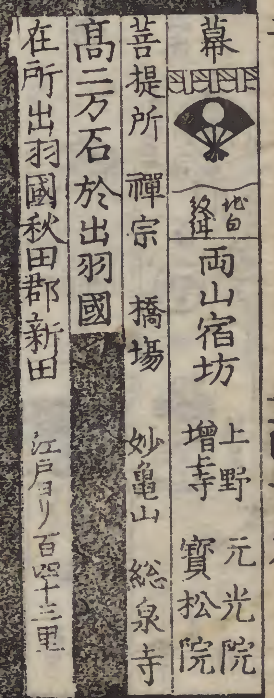 幕
地白
紋淺
両山宿坊
上野 元光院
増寺 寳松院
菩提所 禪宗 橋場 妙亀山 総泉寺
髙二万石於出羽國
在所出羽國秋田郡新田 江戸ヨリ百四十三里